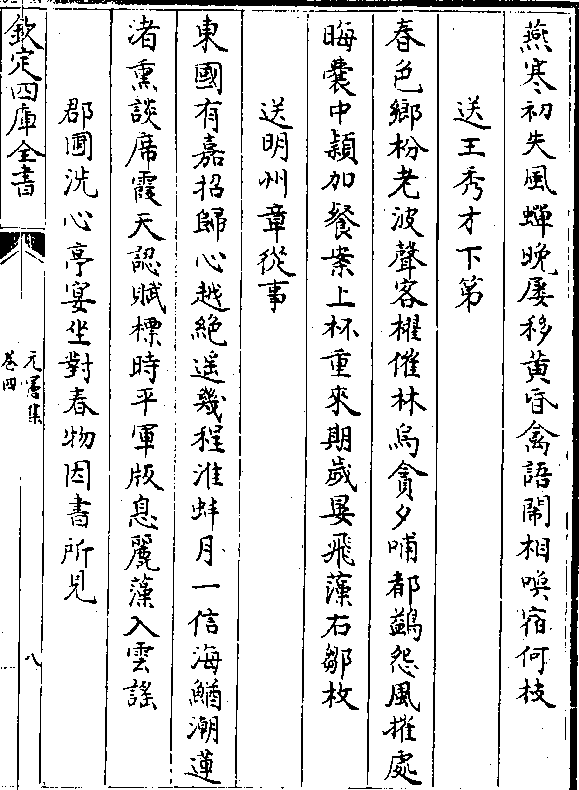 燕寒初失風蟬晚屢移黄昏禽語鬧相喚宿何枝
送王秀才下第
春色鄉枌老波聲客櫂催林烏貪夕哺都鷁怨風摧處
晦囊中穎加餐案上杯重來期歲晏飛藻右鄒枚
送明州章從事
東國有嘉招歸心越絶遥幾程淮蚌月一信海鰌潮蓮
渚熏談席霞天認賦標時平軍版息麗藻入雲謡
郡圃洗心亭宴坐對春物因書所見
欽定四庫全書
元憲集
卷四
八